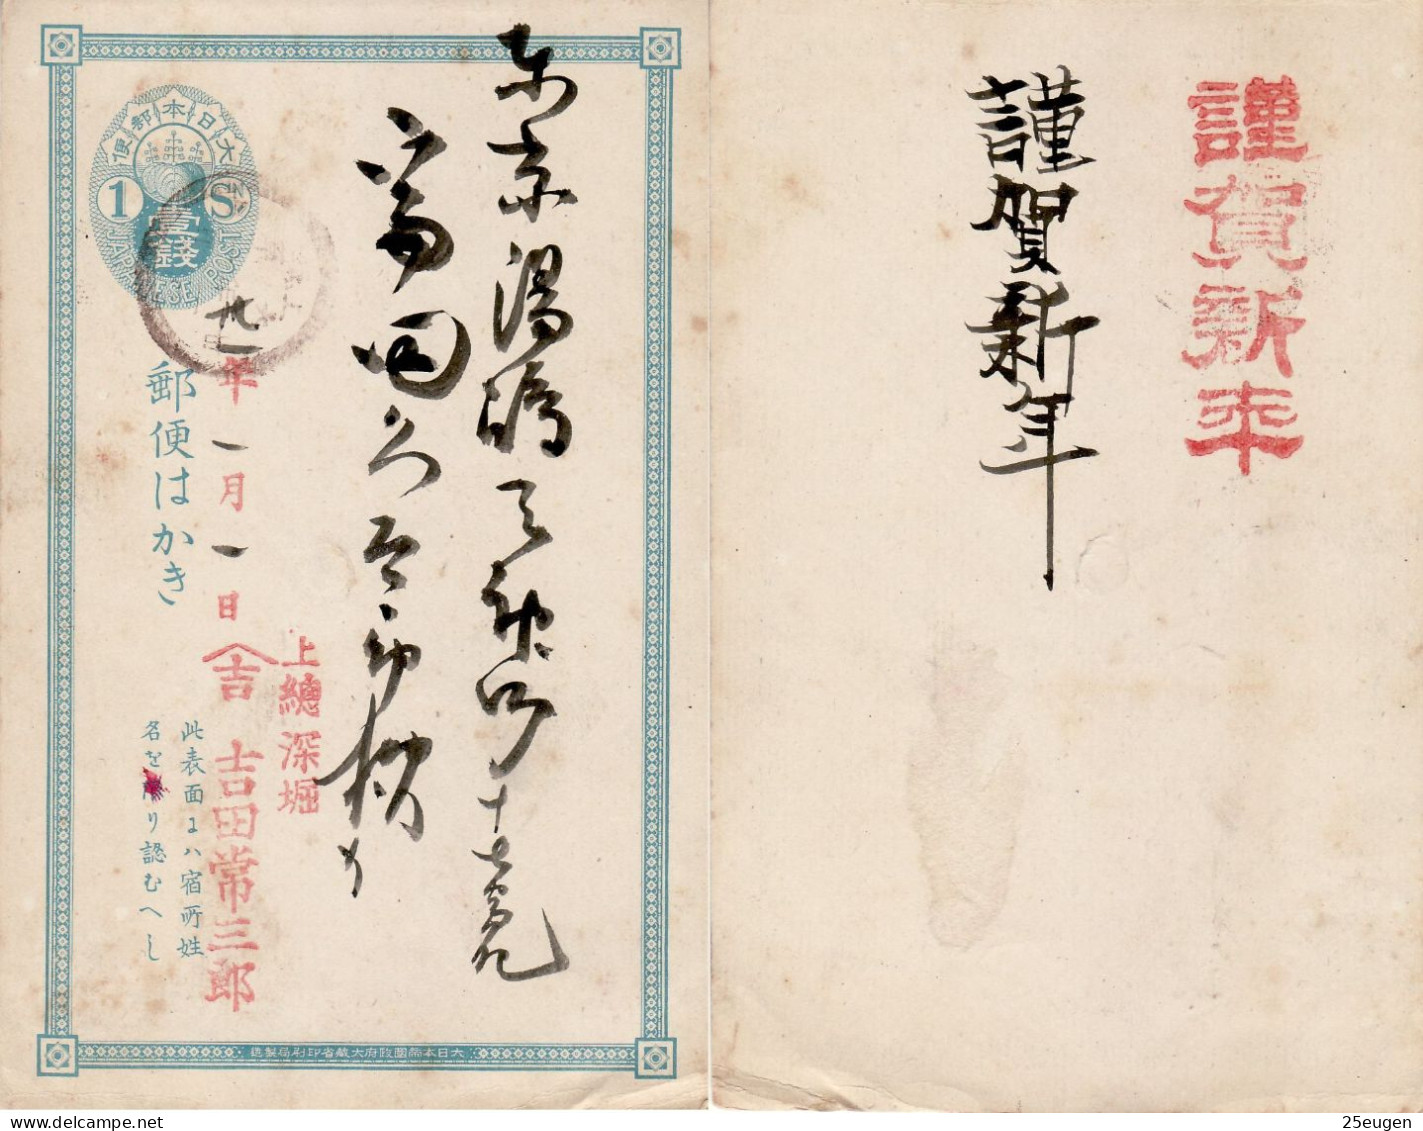 大日本郵便
1 S
壹錢
JAPANESE POST
郵便はかき
此表面にハ宿所姓
名を り認むへし
廿 年一月一日
上總深堀
吉
吉田常三郎
東京湯嶋天神町十七
富田久
大日本帝國政府大藏省印刷局製造
謹賀新年
謹賀新年
25eugen